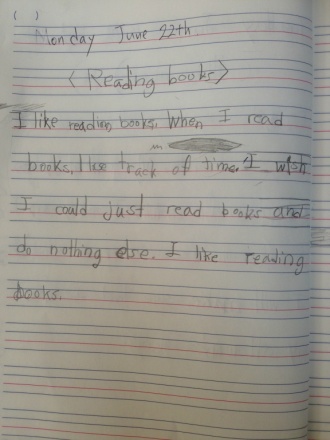 ( )
Monday June 22th.
<Reading books>
I like readian books. When I read
books. I lose track of time. I wish
I could just read books and
do nothing else. I like reading
books.